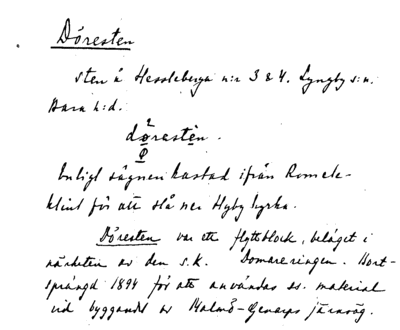 Döresten
sten å Hessleberga n:r 3 & 4. Lyngby s:n.
Bara h:d.
2
døresten.
φ
Enligt sägnen kastad ifrån Romele-
klint för att slå ner Hyby kyrka.
Döresten var ett flyttblock, beläget i
närheten av den s.k. Domareringen. Bort-
sprängd 1894 för att användas ss. material
vid byggandet av Malmö-Genarps järnväg.